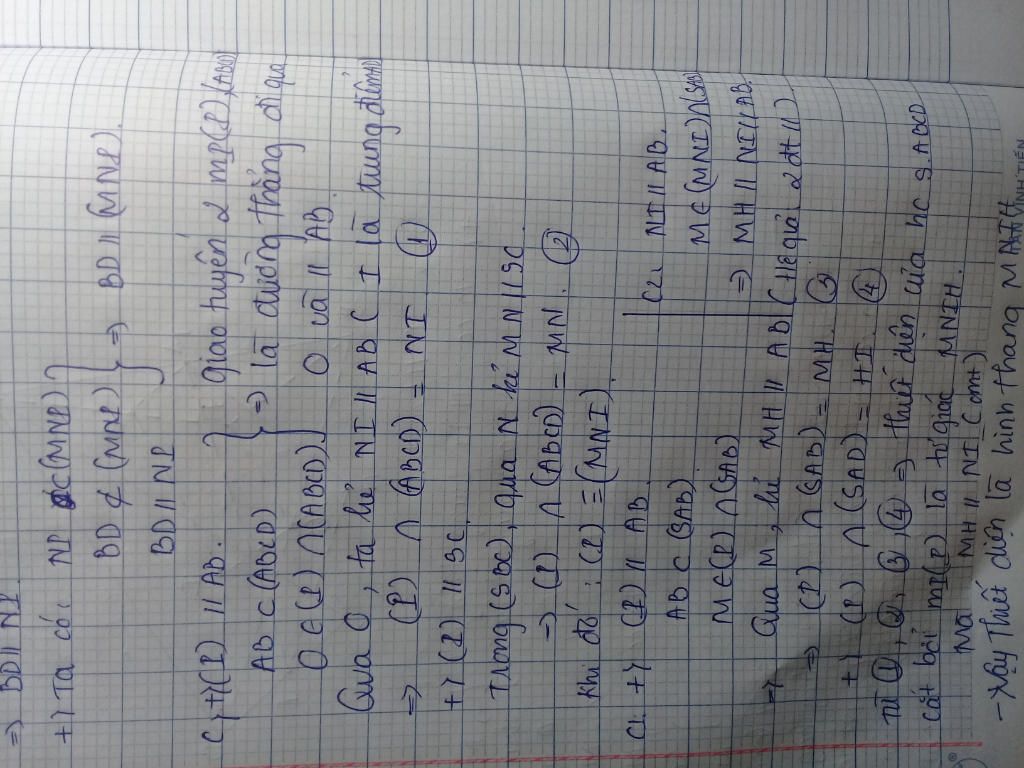 => BD // NP
+> Ta có: NP ⊂ (MNP)
BD ⊄ (MNP) } => BD // (MNP).
BD // NP
C, +> (P) // AB. giao tuyến 2 mp(P), (ABCD)
AB ⊂ (ABCD) } => là đường thẳng đi qua
O ∈ (P) ∩ (ABCD) O và // AB
Qua O, ta kẻ NI // AB ( I là trung điểm AD)
=> (P) ∩ (ABCD) = NI ①
+> (P) // SC.
Trong (SBC), qua N kẻ MN // SC.
=> (P) ∩ (ABCD) = MN. ②
Khi đó: (P) ≡ (MNI).
C1. +> (P) // AB.
AB ⊂ (SAB)
M ∈ (P) ∩ (SAB)
=> Qua M, kẻ MH // AB
C2. NI // AB.
M ∈ (MNI) ∩ (SAB)
=> MH // NI // AB.
( Hệ quả 2 đt // ).
=> (P) ∩ (SAB) = MH. ③
+> (P) ∩ (SAD) = HI. ④
Từ ①, ②, ③, ④ => thiết diện của hc S.ABCD
cắt bởi mp(P) là tứ giác MNIH.
Mà MH // NI (cmt)
- Vậy Thiết diện là hình thang MNIH
VĨNH TIẾN